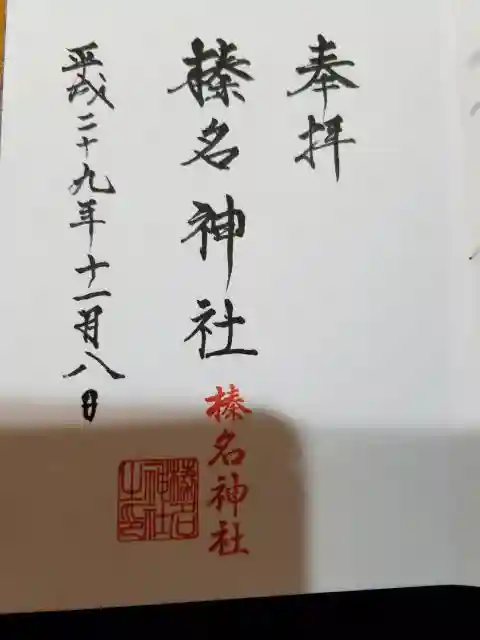 奉拝
榛名神社
榛名神社
榛名神社之印
平成二十九年十一月八日